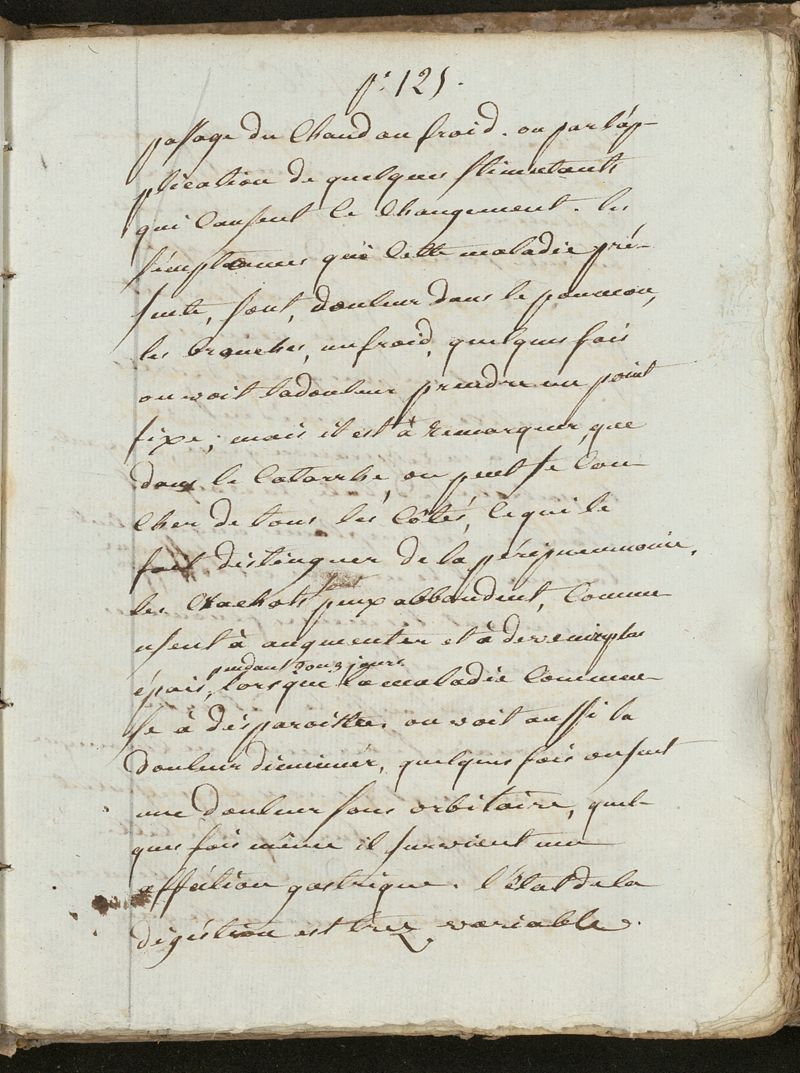 p: 125.
passage du Chaud au froid. ou par l'ap-
plication de quelques stimulants
qui Causent le Changement. les
simptomes que Cette maladie pré-
sente, sont, douleur dans le poumon,
les bronches, un froid, quelques fois
on voit la douleur prendre un point
fixe; mais il est à remarquer, que
dans le Catarrhe, on peut se Cou-
Cher de tous les Côtés, Ce qui le
fait distinguer de la péripneumonie,
les Crachats peux abbondent, Comme
nsent à augmenter et à devenir plus
pendant 2 ou 3 jours
épais, lorsque la maladie Commen-
se à désparoitre. on voit aussi la
douleur diminuér, quelques fois on sent
une douleur sous orbitaire, quel-
ques fois même il survient une
affection gastrique. l'état de la
digéstion est trez variable.